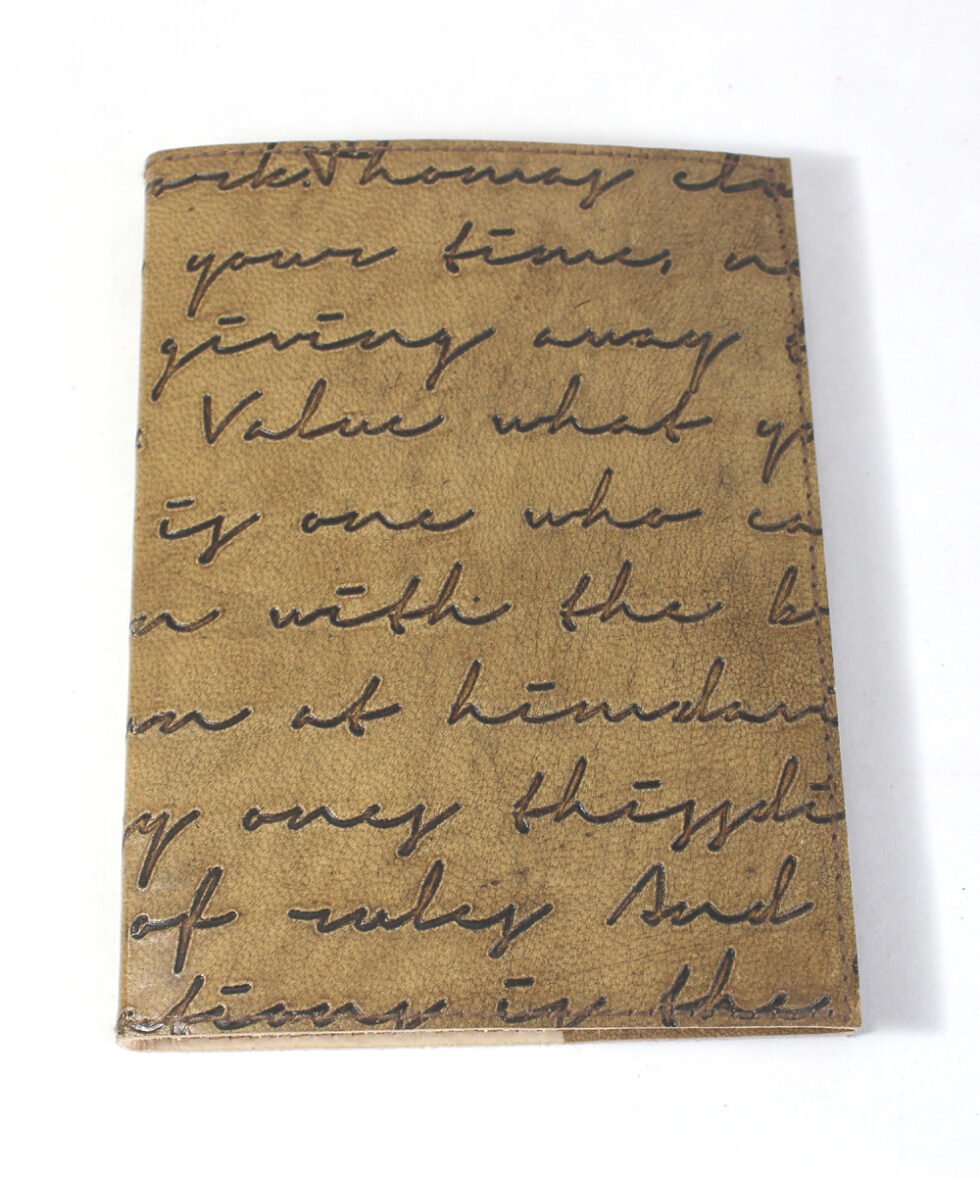 ork. Thomas
your time, 
giving away
Value what yo
is one who ca
n with the b
n at himdavi
y ones thissdi
of rules And
tions is the